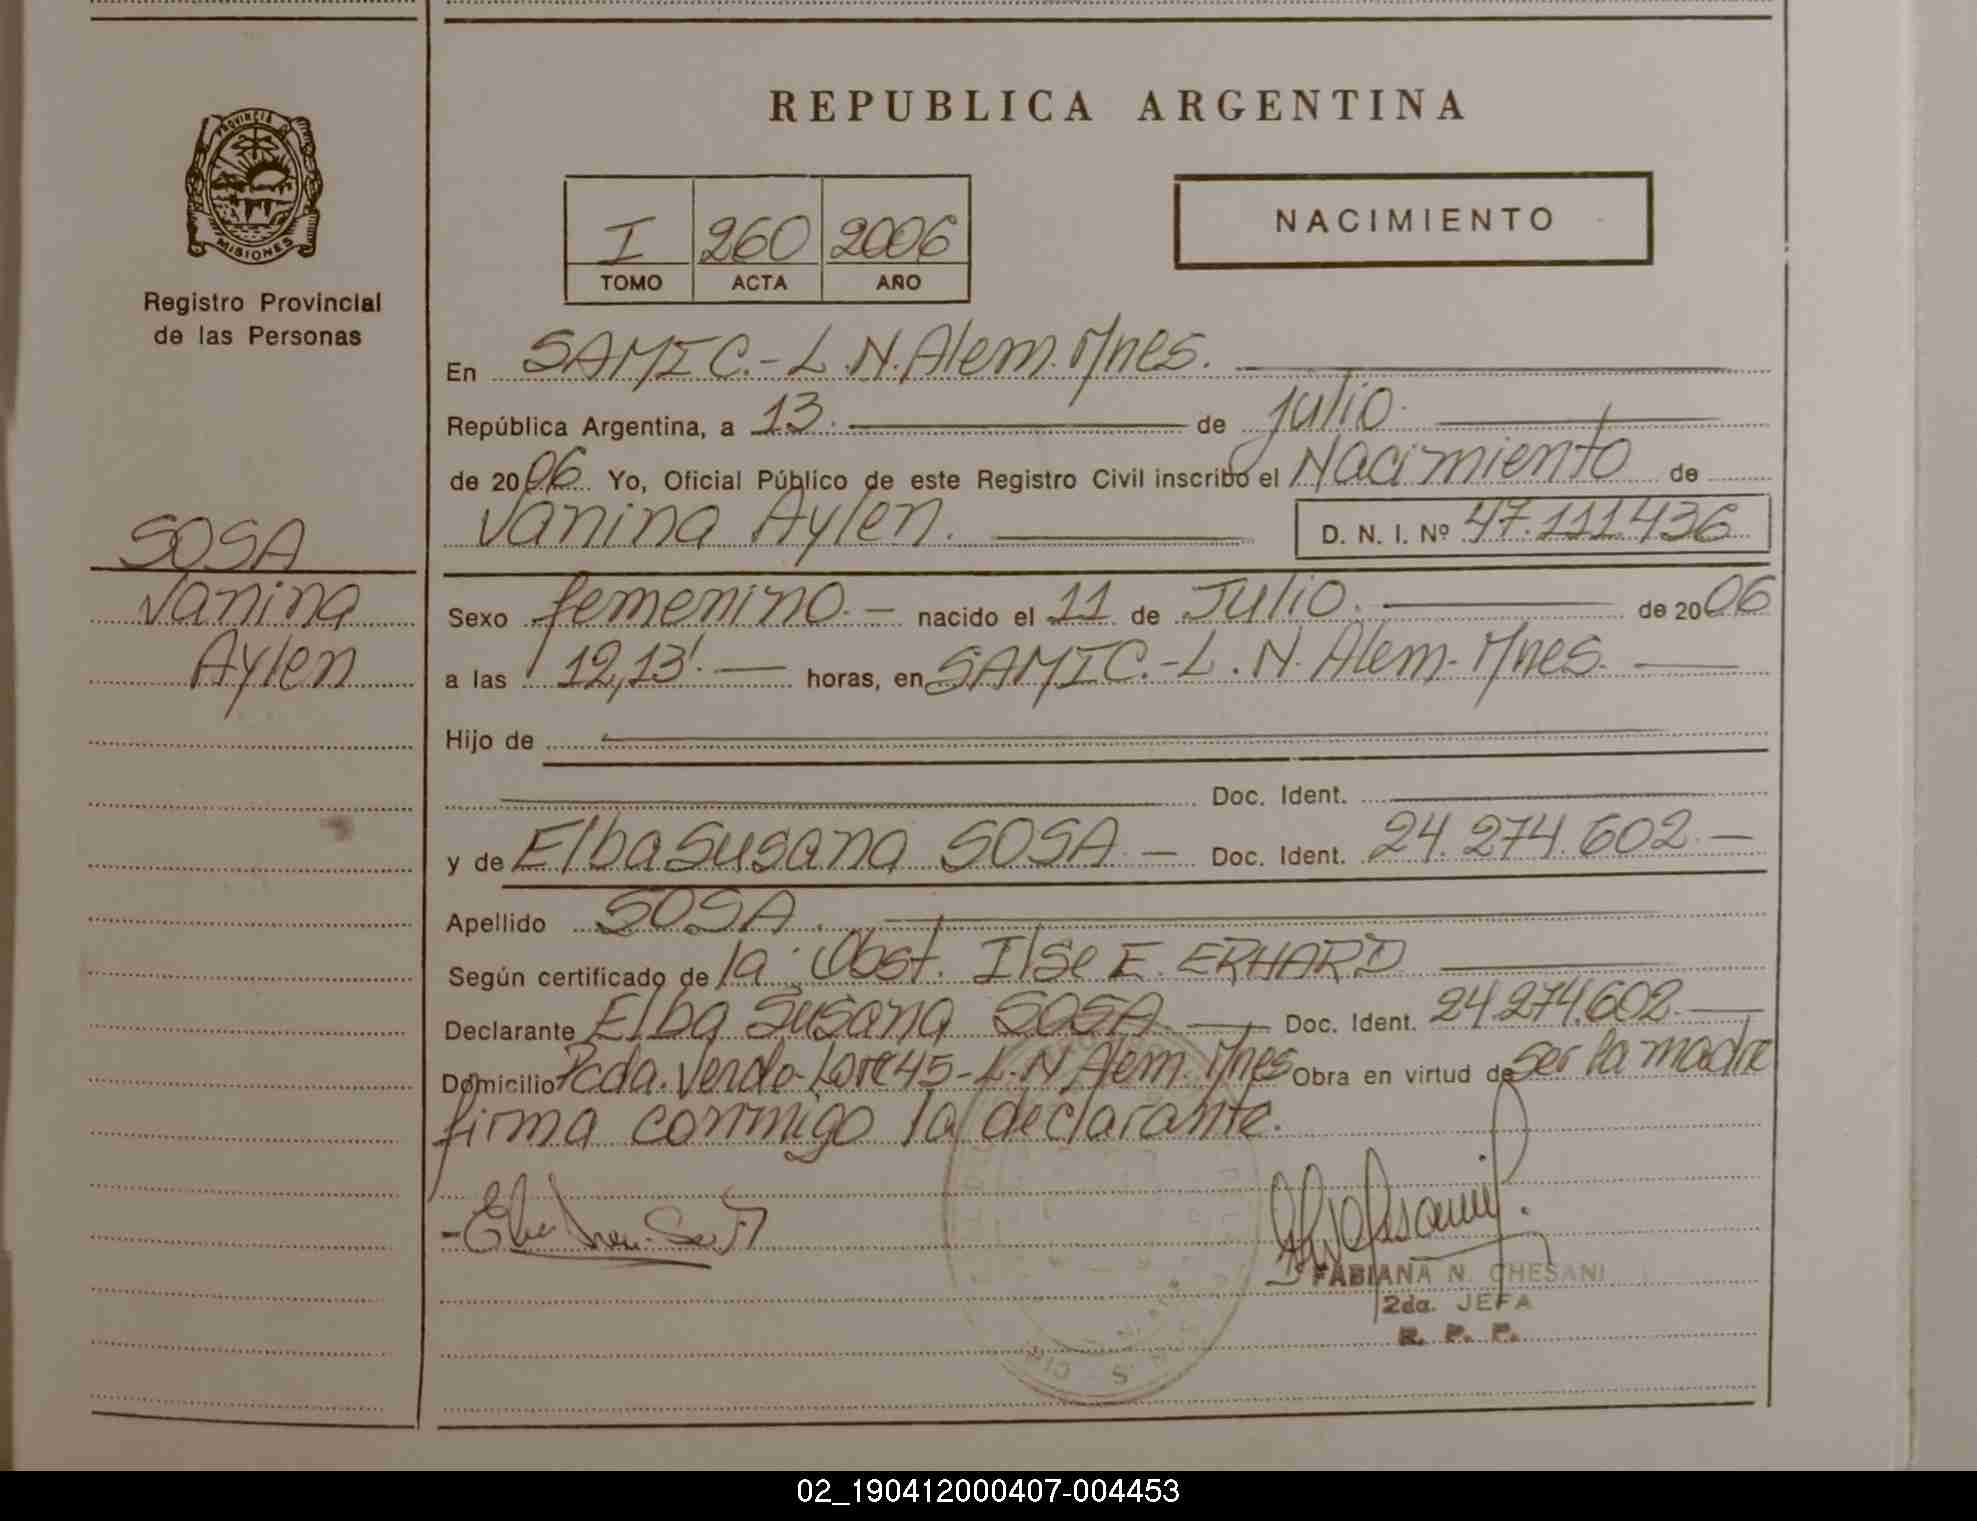 REPUBLICA ARGENTINA
PROVINCIA D
MISIONES
Registro Provincial
de las Personas
I 260 2006
TOMO ACTA AÑO
NACIMIENTO
En SAMIC.- L.N.Alem. Mnes.
República Argentina, a 13. de julio.
de 2006 Yo, Oficial Público de este Registro Civil inscribo el Nacimiento de
Vanina Aylen. D. N. I. Nº 47.111.436
SOSA
Vanina
Aylen
Sexo femenino. - nacido el 11 de Julio. de 2006
a las 12,13'. horas, en SAMIC.-L.N. Alem- Mnes.
Hijo de
Doc. Ident.
y de Elba Susana SOSA - Doc. Ident. 24.274.602.-
Apellido SOSA.
Según certificado de la Obst. Ilse E. ERHARD
Declarante Elba Susana SOSA Doc. Ident. 24.274.602.
Domicilio Pcda. Lote 45-L.N Alem. Mnes Obra en virtud de ser la madre
firma conmigo la declarante.
FABIANA N. CHESANI
2da. JEFA
R. P. P.
02_190412000407-004453